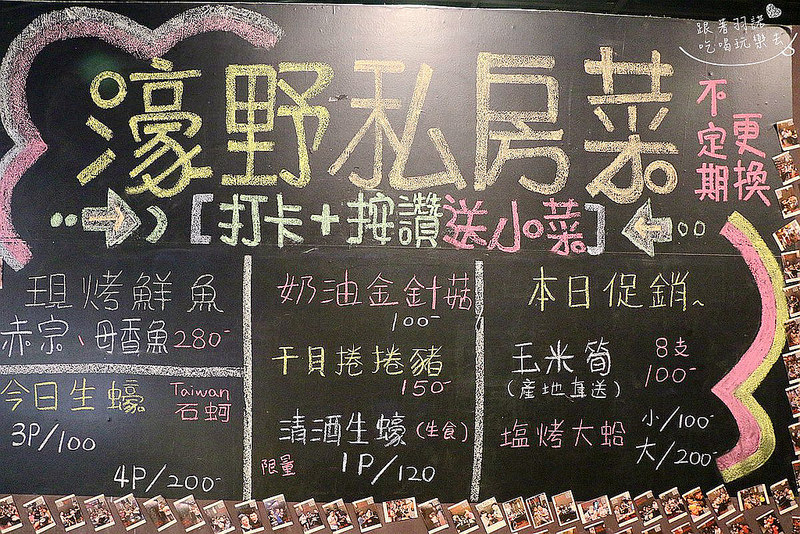 跟著羽諾
吃喝玩樂去
濠野私房菜
不定期
更換
[打卡+按讚送小菜]
現烤鮮魚
赤宗、母香魚280-
今日生蠔
Taiwan
石蚵
3P/100
4P/200-
奶油金針菇
100-
干貝捲捲豬
150-
清酒生蠔(生食)
限量
1P/120
本日促銷~
玉米筍
8支
100-
(產地直送)
塩烤大蛤
小/100-
大/200-